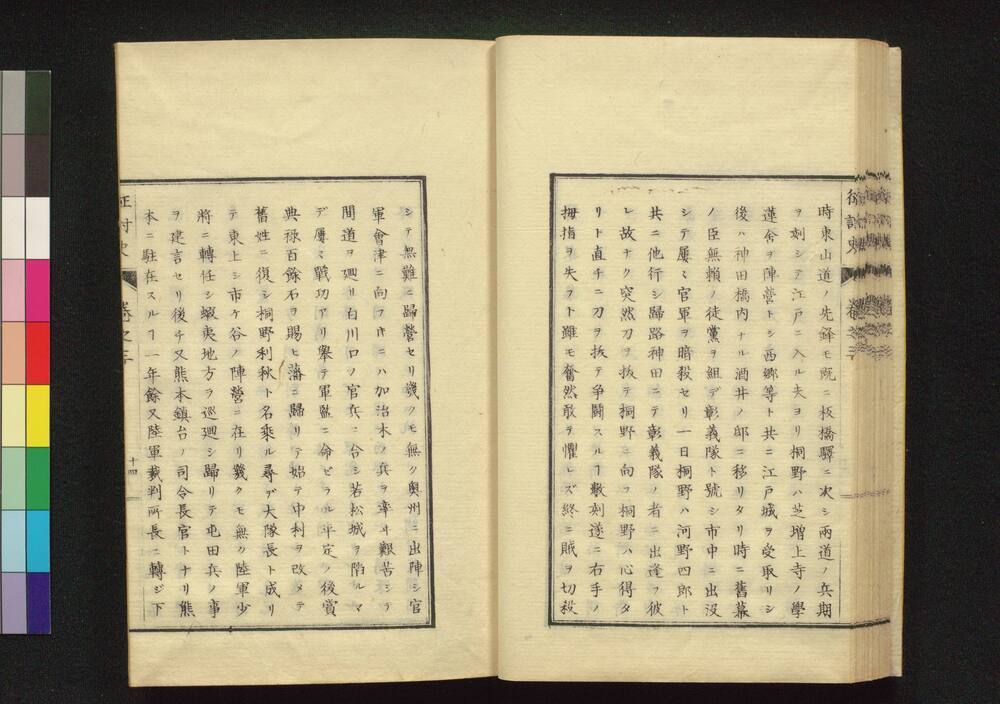 時東山道ノ先鋒モ既ニ板橋驛ニ次シ兩道ノ兵期
ヲ刻シテ江戸ニ入ル夫ヨリ桐野ハ芝増上寺ノ學
蓮舍ヲ陣營トシ西郷等ト共ニ江戸城ヲ受取リシ
後ハ神田橋内ナル酒井ノ邸ニ移リタリ時ニ舊幕
ノ臣無頼ノ徒黨ヲ組デ彰義隊ト號シ市中ニ出没
シテ屢〻官軍ヲ暗殺セリ一日桐野ハ河野四郎ト
共ニ他行シ歸路神田ニテ彰義隊ノ者ニ出逢フ彼
レ故ナク突然刀ヲ抜テ桐野ニ向フ桐野ハ心得タ
リト直チニ刀ヲ抜テ争闘スルヿ數刻遂ニ右手ノ
拇指ヲ失フト雖モ奮然敢テ懼レズ終ニ賊ヲ切殺
シテ無難ニ歸營セリ幾クモ無ク奥州ニ出陣シ官
軍會津ニ向フ片ニハ加治木ノ兵ヲ率ヰ艱苦シテ
間道ヲ廻リ白川口ノ官兵ニ合シ若松城ヲ陷ルマ
デ屢〻戰功アリ擧テ軍監ニ命ビラル平定ノ後賞
典禄百餘石ヲ賜ヒ藩ニ歸リテ始テ中利ヲ改メテ
舊姓ニ復シ桐野利秋ト名乘ル尋デ大隊長ト成リ
テ東上シ市ケ谷ノ陣營ニ在リ幾クモ無ク陸軍少
將ニ轉任シ蝦夷地方ヲ巡廻シ歸リテ屯田兵ノ事
ヲ建言セリ後チ又熊本鎮台ノ司令長官トナリ熊
本ニ駐在スルヿ一年餘又陸軍裁判所長ニ轉ジ下
征討史 卷之三
十四